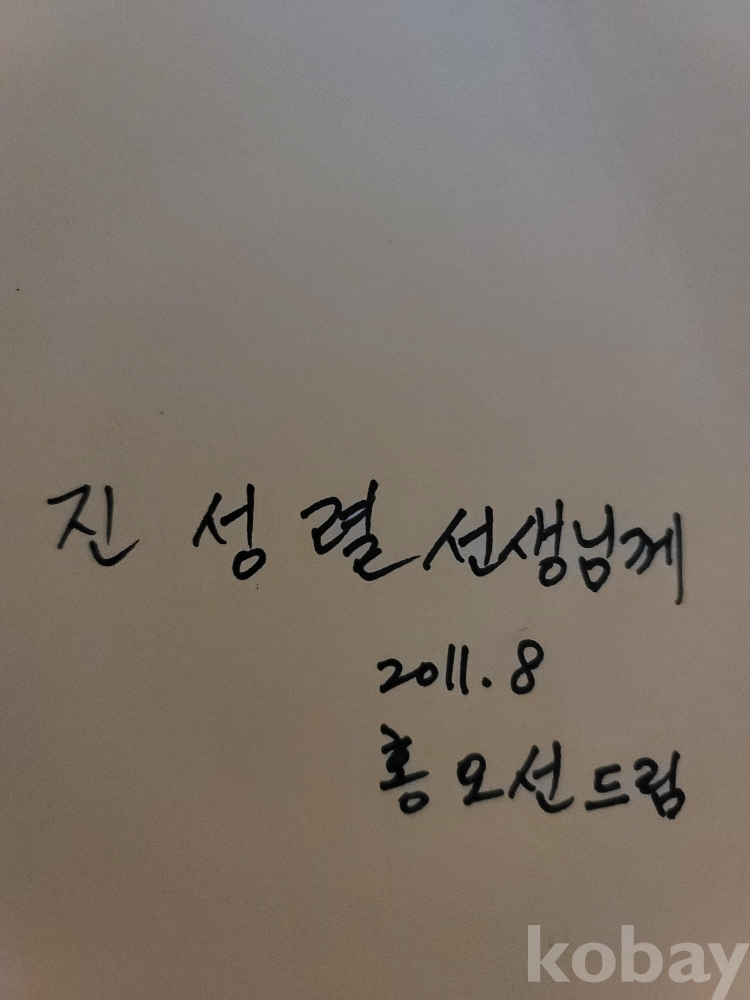 진 성 렬 선생님께
2011. 8
홍 오선 드림
kobay